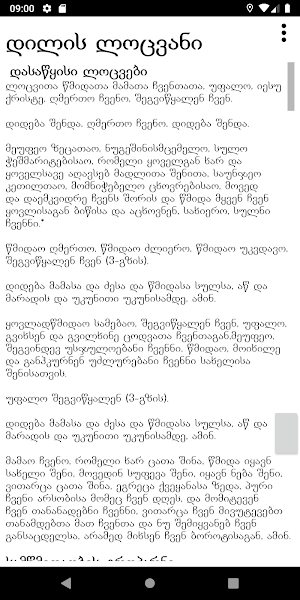 09:00
დილის ლოცვანი
დასაწყისი ლოცვები
ლოცვითა წმიდათა მამათა ჩვენთათა, უფალო, იესუ
ქრისტე, ღმერთო ჩვენო, შეგვიწყალენ ჩვენ.
დიდება შენდა, ღმერთო ჩვენო, დიდება შენდა.
მეუფეო ზეცათაო, ნუგეშინისმცემელო, სულო
ჭეშმარიტებისაო, რომელი ყოველგან ხარ და
ყოველსავე აღავსებ მადლითა შენითა, საუნჯეო
კეთილთაო, მომნიჭებელო ცხოვრებისაო, მოვედ
და დაემკვიდრე ჩვენს შორის და წმიდა მყვენ ჩვენ
ყოვლისაგან ბიწისა და აცხოვნენ, სახიერო, სულნი
ჩვენნი.*
წმიდაო ღმერთო, წმიდაო ძლიერო, წმიდაო უკვდავო,
შეგვიწყალენ ჩვენ (3-გზის).
დიდება მამასა და ძესა და წმიდასა სულსა, აწ და
მარადის და უკუნითი უკუნისამდე, ამინ.
ყოვლადწმიდაო სამებაო, შეგვიწყალენ ჩვენ, უფალო,
გვიხსენ და გვილხინე ცოდვათა ჩვენთაგან,მეუფეო,
შეგვინდევ უსჯულოებანი ჩვენნი, წმიდაო, მოიხილე
და განჰკურნენ უძლურებანი ჩვენნი სახელისა
შენისათვის.
უფალო შეგვიწყალენ (3-გზის).
დიდება მამასა და ძესა და წმიდასა სულსა, აწ და
მარადის და უკუნითი უკუნისამდე, ამინ.
მამაო ჩვენო, რომელი ხარ ცათა შინა, წმიდა იყავნ
სახელი შენი, მოვედინ სუფევა შენი, იყავნ ნება შენი,
ვითარცა ცათა შინა, ეგრეცა ქვეყანასა ზედა, პური
ჩვენი არსობისა მომეც ჩვენ დღეს, და მომიტევენ
ჩვენ თანანადებნი ჩვენნი, ვითარცა ჩვენ მივუტევებთ
თანამდებთა მათ ჩვენთა და ნუ შემიყვანებ ჩვენ
განსაცდელსა, არამედ მიხსენ ჩვენ ბოროტისაგან, ამინ.